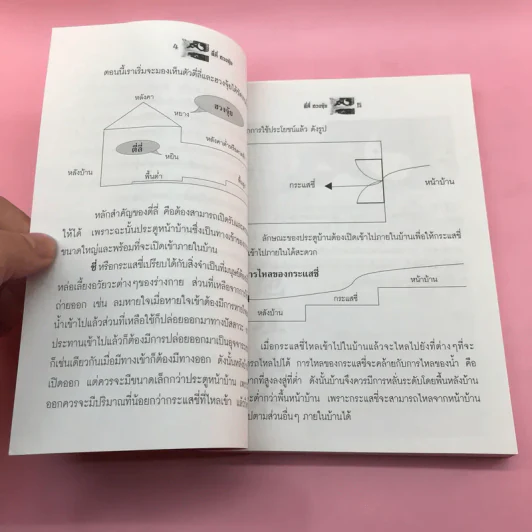 4 ตี่ลี่ ฮวงจุ้ย
ตอนนี้เราเริ่มจะมองเห็นตัวตี่ลี่และฮวงจุ้ยได้
หลังคา
หยาง
ฮวงจุ้ย
หลังคาต่ำ
ตี่ลี่
หยิน
หลังบ้าน
พื้นต่ำ
หลักสำคัญของตี่ลี่ คือต้องสามารถเปิดรับและ
ให้ได้ เพราะฉะนั้นประตูหน้าบ้านซึ่งเป็นทางเข้าของ
ขนาดใหญ่และพร้อมที่จะเปิดเข้าภายในบ้าน
ชี่ หรือกระแสชี่เปรียบได้กับสิ่งจำเป็นที่มนุษย์ต้อง
หล่อเลี้ยงอวัยวะต่างๆของร่างกาย ส่วนที่เหลือจากการ
ถ่ายออก เช่น ลมหายใจเมื่อหายใจเข้าต้องมีการหายใจ
น้ำเข้าไปแล้วส่วนที่เหลือใช้ก็ปล่อยออกมาทางปัสสาวะ
ประทานเข้าไปแล้วก็ต้องมีการปล่อยออกมาเป็นอุจจาระ
ก็เช่นเดียวกันเมื่อมีทางเข้าก็ต้องมีทางออก ดังนั้น
เปิดออก แต่ควรจะมีขนาดเล็กกว่าประตูหน้าบ้าน
ออกควรจะมีปริมาณที่น้อยกว่ากระแสชี่ที่ไหลเข้า แล้ว
ตี่ลี่ ฮวงจุ้ย 5
การใช้ประโยชน์แล้ว ดังรูป
กระแสชี่
หน้าบ้าน
ลักษณะของประตูบ้านต้องเปิดเข้าไปภายในบ้านเพื่อให้กระแสชี่
เข้าไปภายในได้สะดวก
การไหลของกระแสชี่
หน้าบ้าน
กระแสชี่
หลังบ้าน
เมื่อกระแสชี่ไหลเข้าไปในบ้านแล้วจะไหลไปยังที่ต่างๆที่จะ
ไหลไปได้ การไหลของกระแสชี่จะคล้ายกับการไหลของน้ำ คือ
ที่สูงลงสู่ที่ต่ำ ดังนั้นบ้านจึงควรมีการหลั่นระดับโดยพื้นหลังบ้าน
ต่ำกว่าพื้นหน้าบ้าน เพราะกระแสชี่จะสามารถไหลจากหน้าบ้าน
ตามส่วนอื่นๆ ภายในบ้านได้